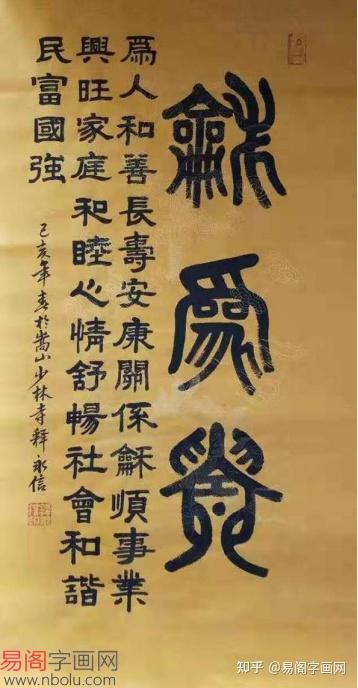 龢爲貴
爲人和善長壽安康關係龢順事業
興旺家庭和睦心情舒暢社會和諧
民富國強
己亥年春於嵩山少林寺釋永信
易阁字画网
www.nbolu.com
知乎 @易阁字画网